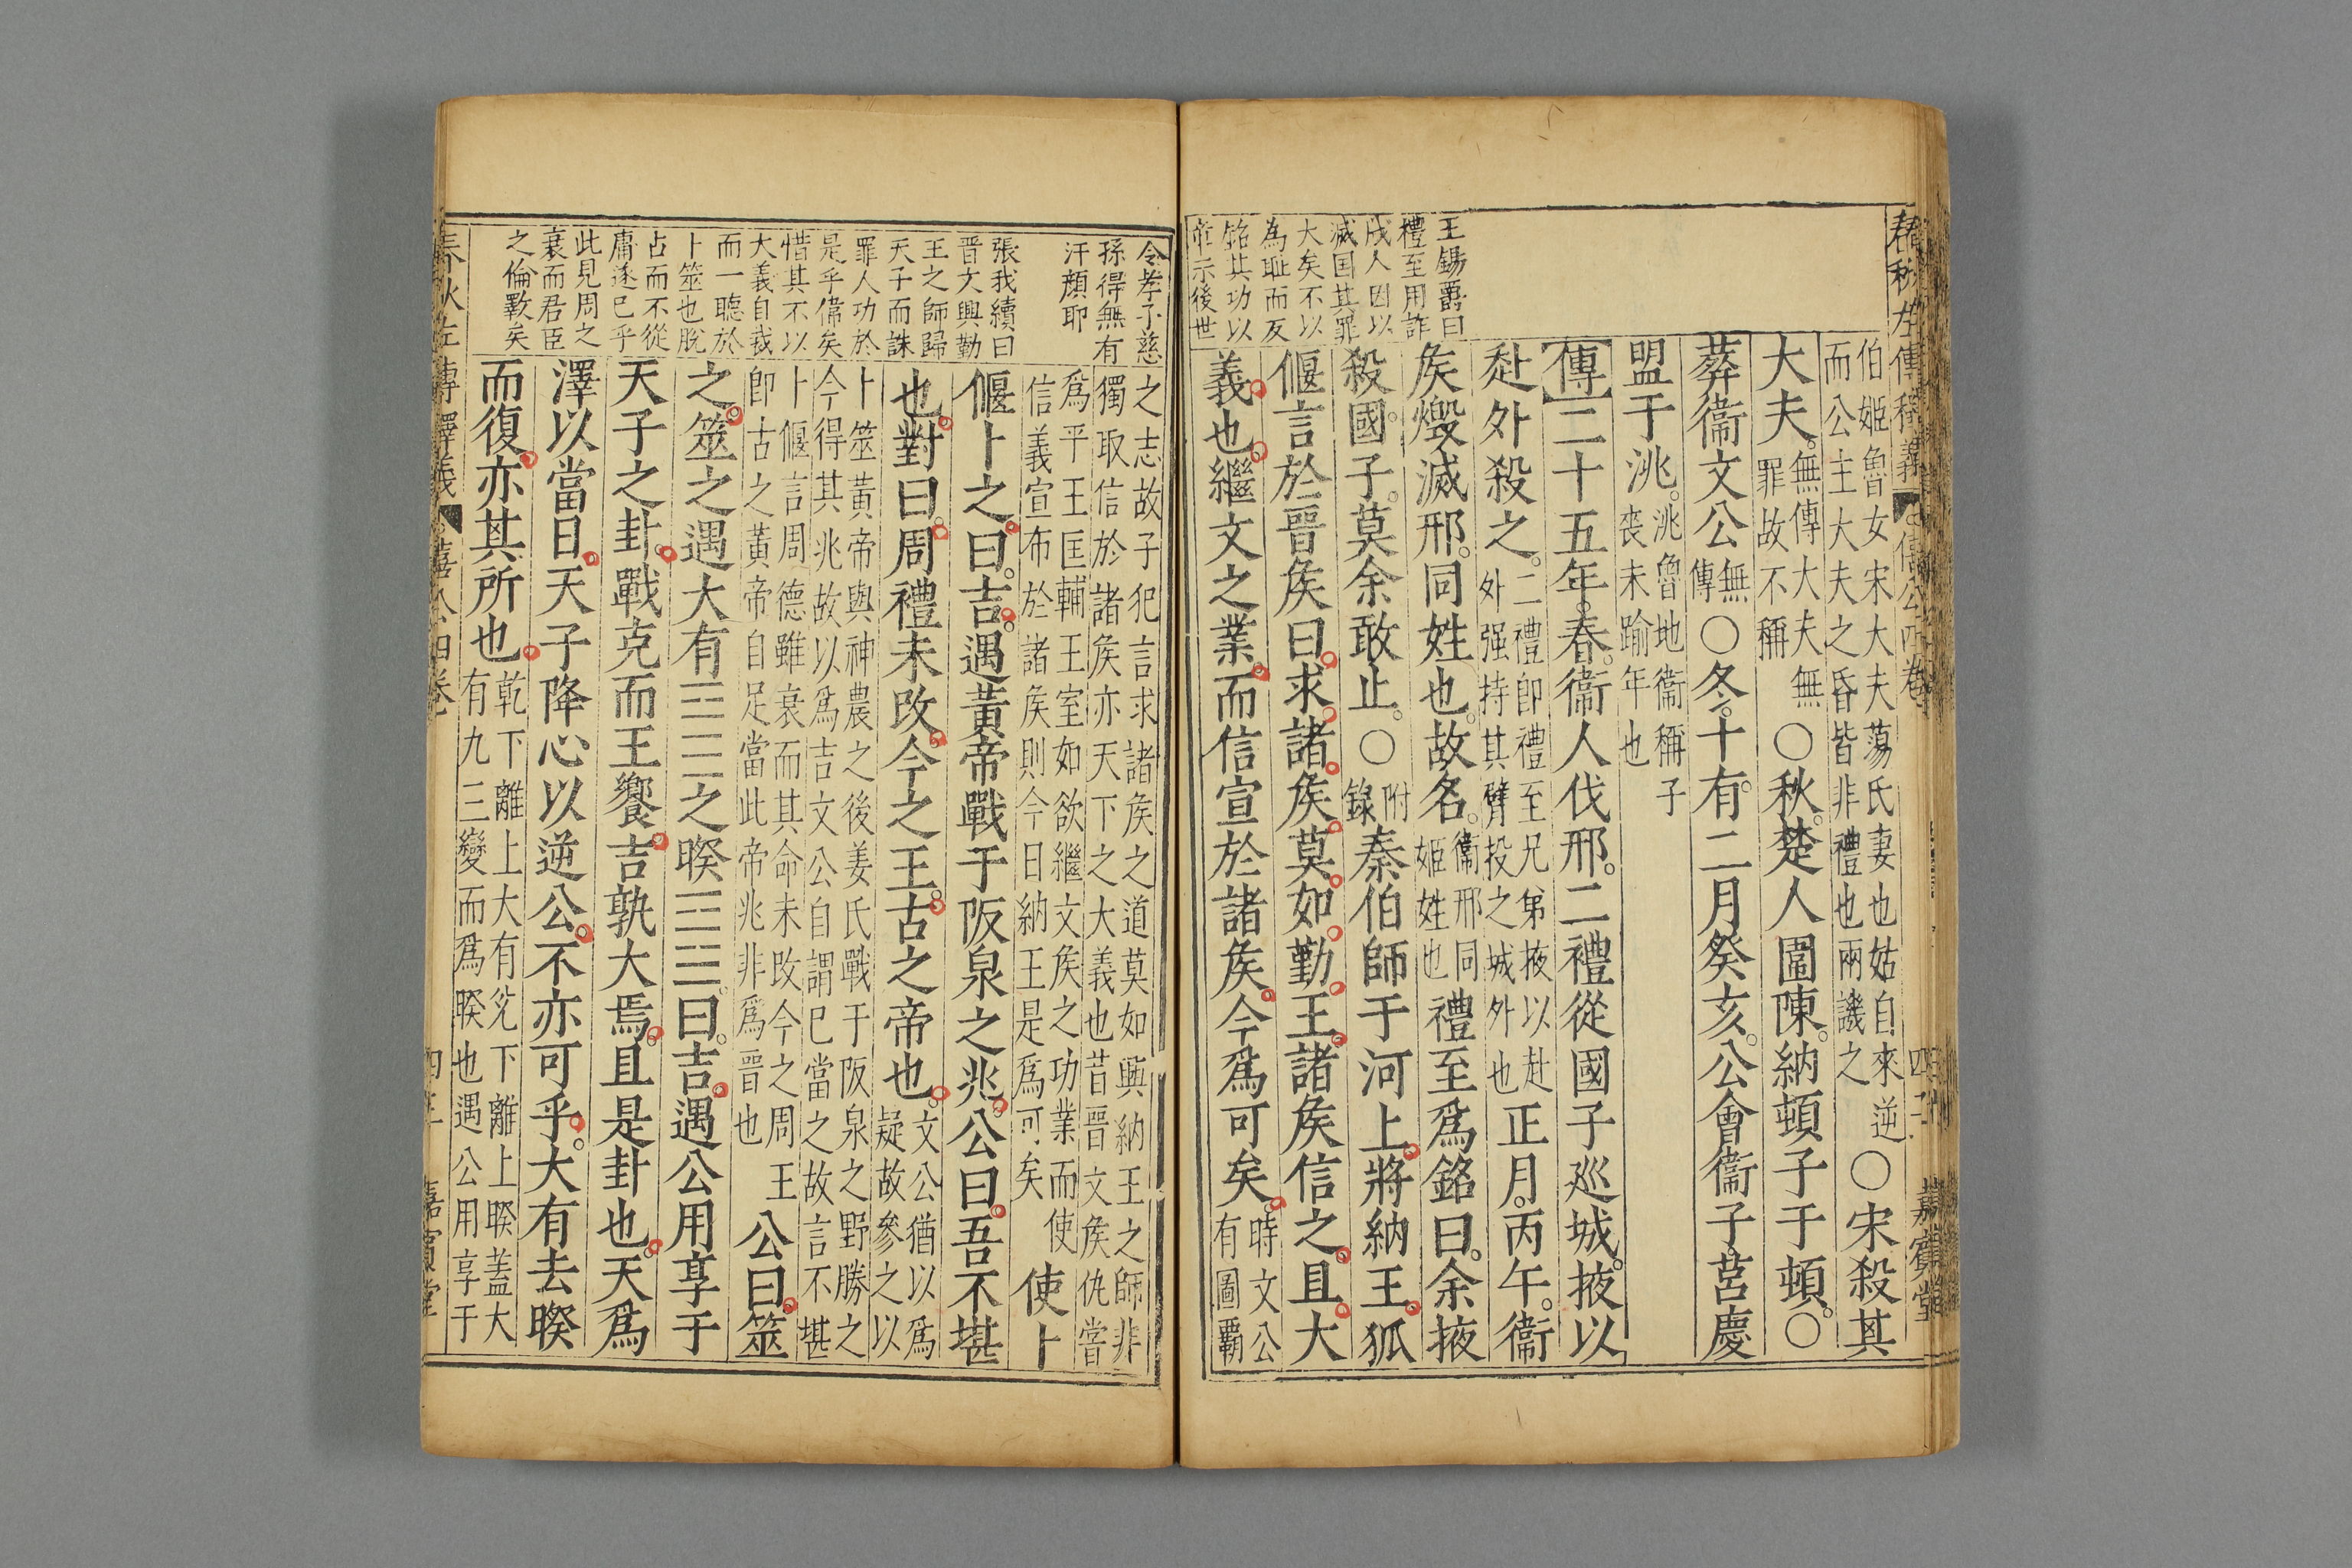 春秋左傳釋義
僖公四卷
嘉賓堂
王錫爵曰
禮至用詐
戍人因以
滅国其罪
大矣不以
為恥而反
銘其功以
示後世
伯姬魯女宋大夫蕩氏妻也姑自來逆
而公主大夫之昏皆非禮也兩譏之
○宋殺其
大夫
無傳大夫無
罪故不稱
○秋楚人圍陳納頓子于頓○
葬衞文公
無
傳
○冬十有二月癸亥公會衞子莒慶
盟于洮
洮魯地衞稱子
喪未踰年也
傳二十五年春衞人伐邢二禮從國子巡城掖以
赴外殺之
二禮即禮至兄弟掖以赴
外强持其臂投之城外也
正月丙午衞
矦燬滅邢同姓也故名
衞邢同
姬姓也
禮至爲銘曰余掖
殺國子莫余敢止○
附
錄
秦伯師于河上將納王狐
偃言於晉矦曰求諸矦莫如勤王諸矦信之且大
義也繼文之業而信宣於諸矦今爲可矣
時文公
有圖霸
令孝子慈
孫得無有
汗顏耶
張我續曰
晉文興勤
王之師歸
天子而誅
罪人功於
是乎偉矣
惜其不以
大義自我
而一聽於
卜筮也脫
占而不從
庸遂已乎
此見周之
衰而君臣
之倫斁矣
之志故子犯言求諸矦之道莫如興納王之師非
獨取信於諸矦亦天下之大義也昔晉文矦仇嘗
爲平王匡輔王室如欲繼文矦之功業而使
信義宣布於諸矦則今日納王是爲可矣
使卜
偃卜之曰吉遇黃帝戰于阪泉之兆公曰吾不堪
也對曰周禮未改今之王古之帝也
文公猶以爲
疑故參之以
卜筮黃帝與神農之後姜氏戰于阪泉之野勝之
今得其兆故以爲吉文公自謂已當之故言不堪
卜偃言周德雖衰而其命未改今之周王
卽古之黃帝自足當此帝兆非爲晉也
公曰筮
之筮之遇大有☲☰之睽☲☱曰吉遇公用享于
天子之卦戰克而王饗吉孰大焉且是卦也天爲
澤以當日天子降心以逆公不亦可乎大有去睽
而復亦其所也
乾下離上大有兊下離上睽蓋大
有九三變而爲睽也遇公用享于
春秋左傳釋義
僖公四卷
嘉賓堂